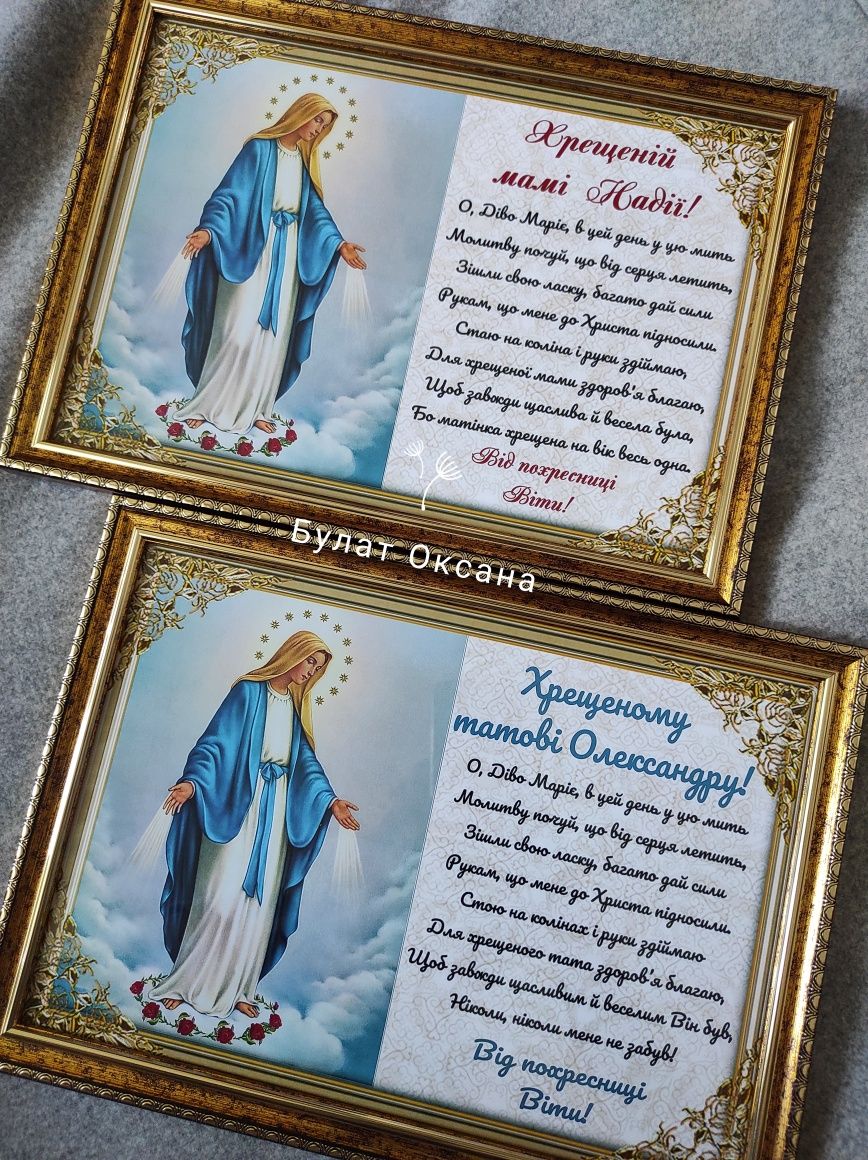 Хрещеній
мамі Надії!
О, Діво Маріє, в цей день у цю мить
Молитву почуй, що від серця летить,
Зішли свою ласку, багато дай сили
Рукам, що мене до Христа підносили.
Стаю на коліна і руки здіймаю,
Для хрещеної мами здоров'я благаю,
Щоб завжди щаслива й весела була,
Бо матінка хрещена на вік весь одна.
Від похресниці
Віти!
Булат Оксана
Хрещеному
татові Олександру!
О, Діво Маріє, в цей день у цю мить
Молитву почуй, що від серця летить,
Зішли свою ласку, багато дай сили
Рукам, що мене до Христа підносили.
Стою на колінах і руки здіймаю
Для хрещеного тата здоров'я благаю,
Щоб завжди щасливим й веселим Він був,
Ніколи, ніколи мене не забув!
Від похресниці
Віти!